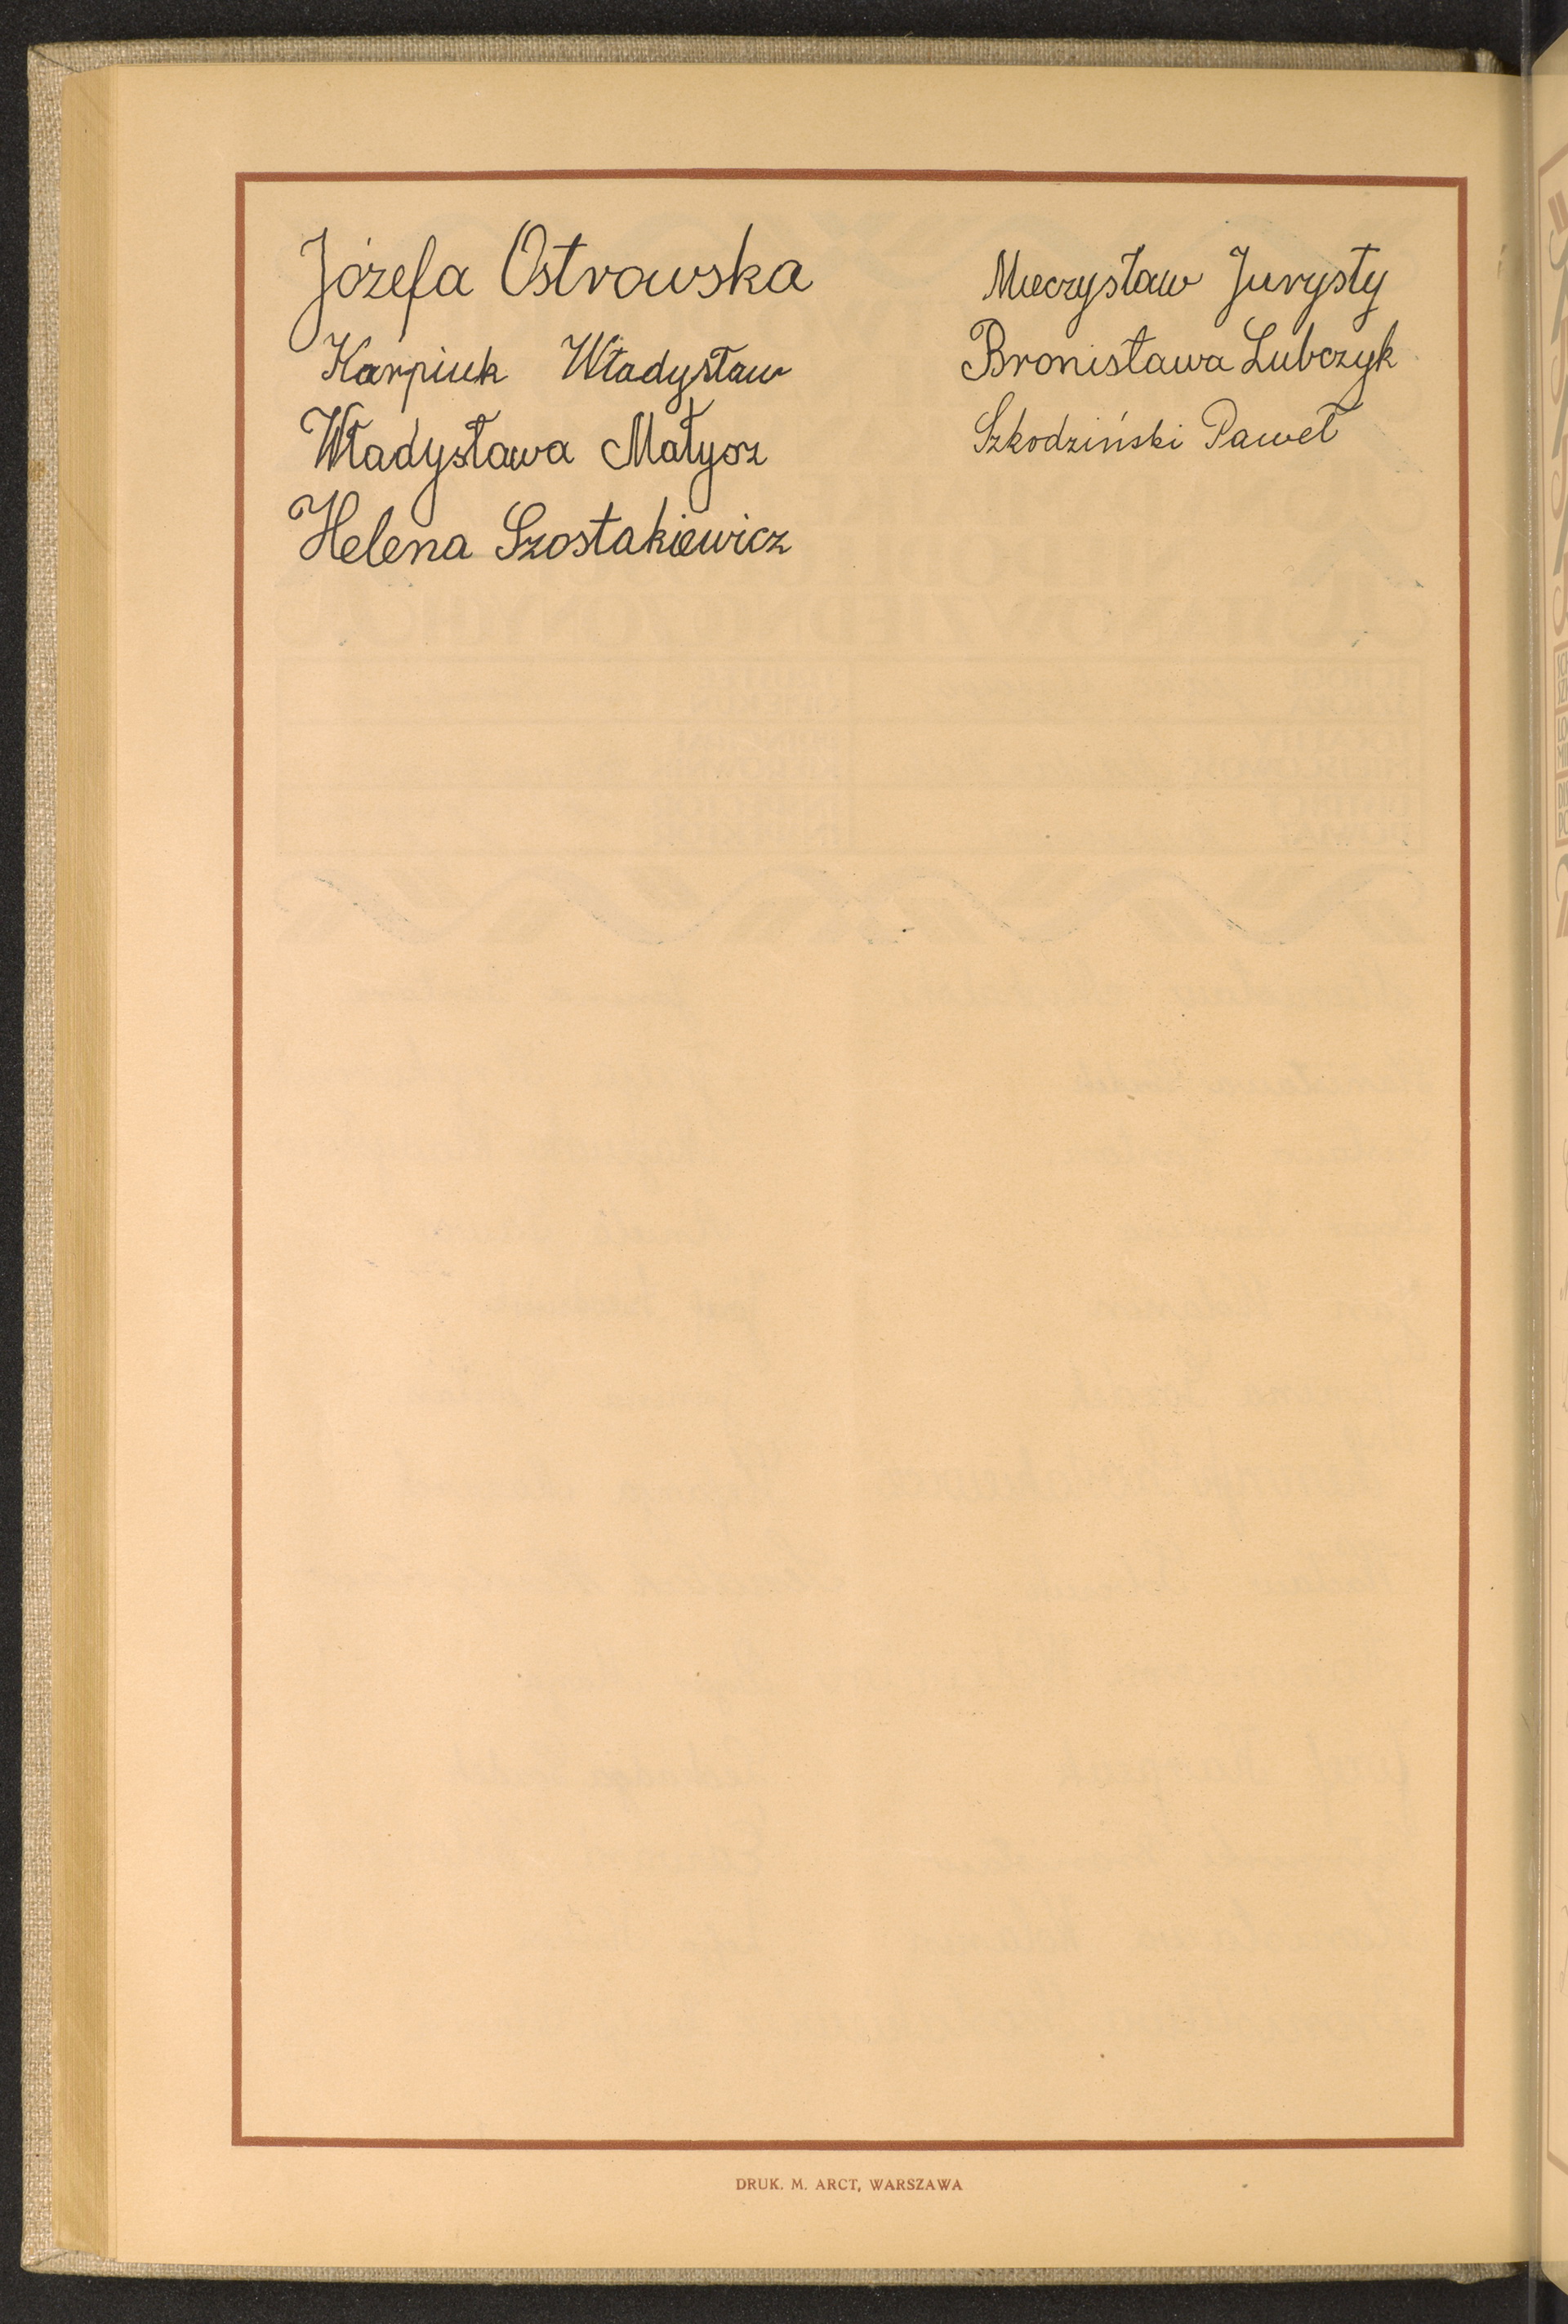 Józefa Ostrowska
Karpiuk Władysław
Władysława Małysz
Helena Szostakiewicz
Mieczysław Jurysty
Bronisława Lubczyk
Szkodziński Paweł
DRUK. M. ARCT, WARSZAWA